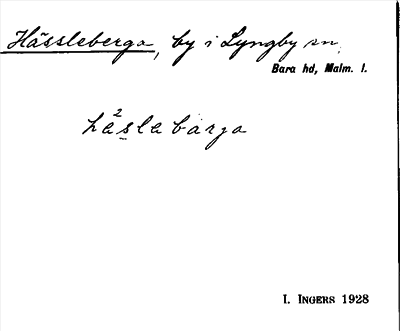 Hässleberga, by i Lyngby sn.
Bara hd, Malm. l.
hä²slabärga
I. INGERS 1928